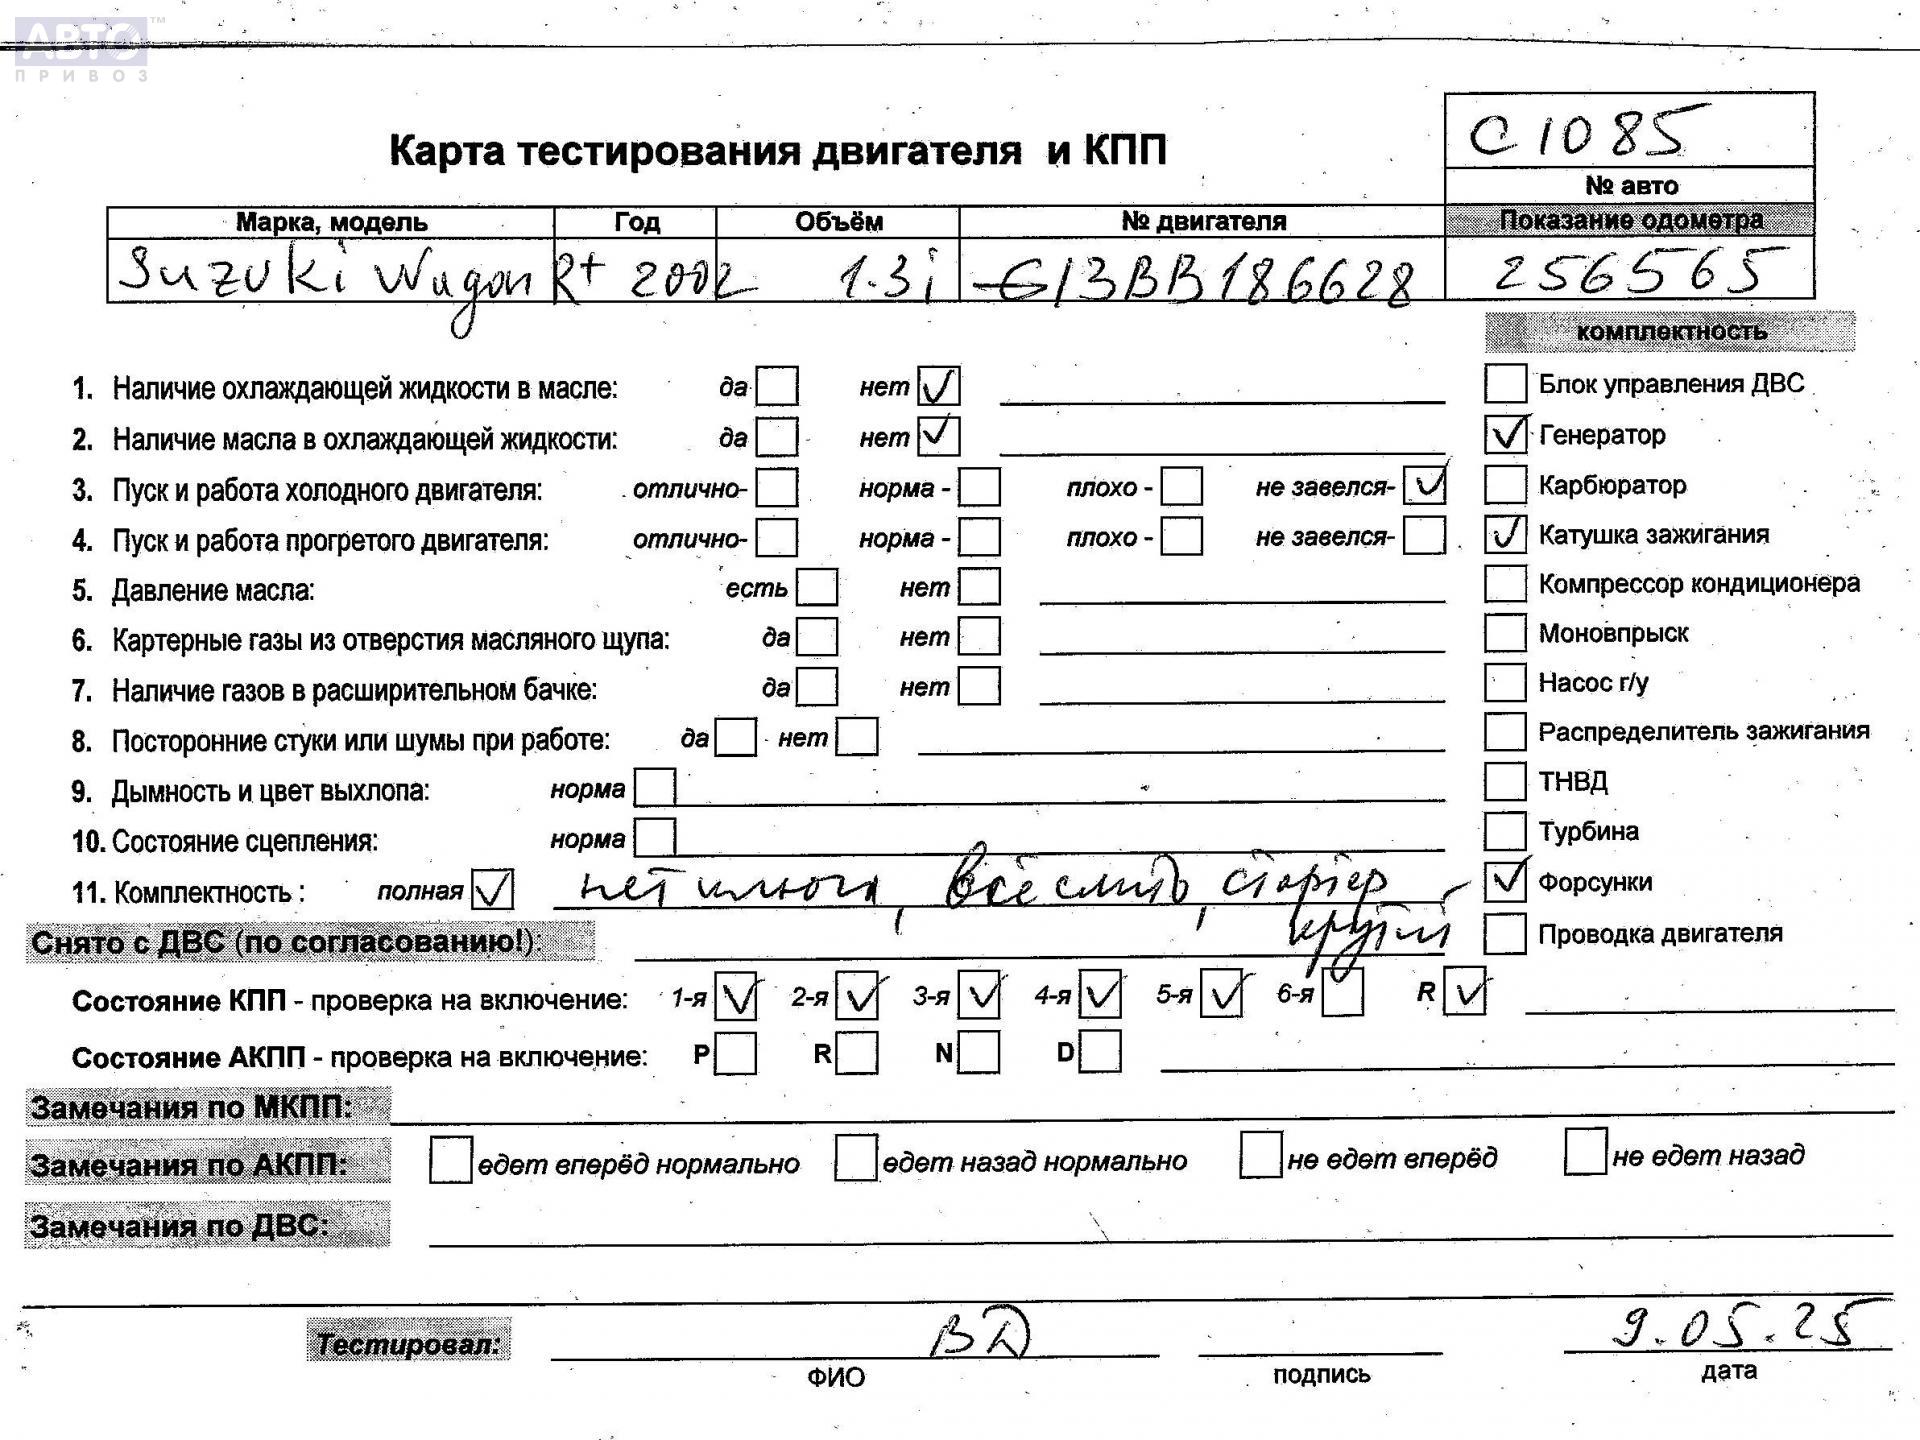 АВТО™
ПРИВОЗ
C1085
Карта тестирования двигателя и КПП
№ авто
Марка, модель Год Объём № двигателя Показание одометра
Suzuki Wagon R+ 2002 1.3i G13BB186628 256565
комплектность
1. Наличие охлаждающей жидкости в масле: да нет ✓ Блок управления ДВС
2. Наличие масла в охлаждающей жидкости: да нет ✓ ✓ Генератор
3. Пуск и работа холодного двигателя: отлично- норма - плохо - не завелся- ✓ Карбюратор
4. Пуск и работа прогретого двигателя: отлично- норма - плохо - не завелся- ✓ Катушка зажигания
5. Давление масла: есть нет Компрессор кондиционера
6. Картерные газы из отверстия масляного щупа: да нет Моновпрыск
7. Наличие газов в расширительном бачке: да нет Насос г/у
8. Посторонние стуки или шумы при работе: да нет Распределитель зажигания
9. Дымность и цвет выхлопа: норма ТНВД
10. Состояние сцепления: норма Турбина
11. Комплектность : полная ✓ нет ключа, всё снято, стартер ✓ Форсунки
крутил
Снято с ДВС (по согласованию!): Проводка двигателя
Состояние КПП - проверка на включение: 1-я ✓ 2-я ✓ 3-я ✓ 4-я ✓ 5-я ✓ 6-я R ✓
Состояние АКПП - проверка на включение: P R N D
Замечания по МКПП:
Замечания по АКПП: едет вперёд нормально едет назад нормально не едет вперёд не едет назад
Замечания по ДВС:
Тестировал: ВД 9.05.25
ФИО подпись дата